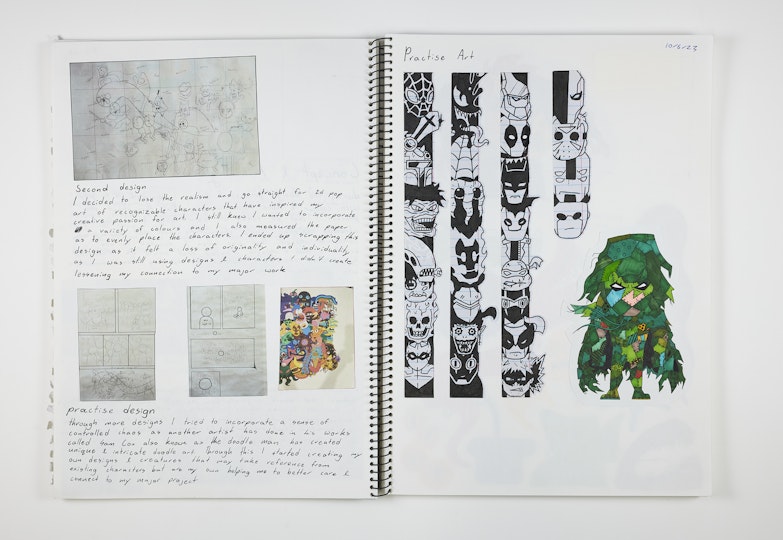 Second design
I decided to lose the realism and go straight for 2d pop
art of recognizable characters that have inspired my
creative passion for art. I still knew I wanted to incorporate
a variety of colours and I also measured the paper
as to evenly place the characters. I ended up scrapping this
design as I felt a loss of originality and individuality
as I was still using designs & characters I didn't create
lessening my connection to my major work
practise design
through more designs I tried to incorporate a sense of
controlled chaos as another artist has done in his works
called Sam Cox also known as the doodle man has created
unique & intricate doodle art. Through this I started creating my
own designs & creatures that may take reference from
existing characters but are my own helping me to better care &
connect to my major project
Practise Art
10/6/23